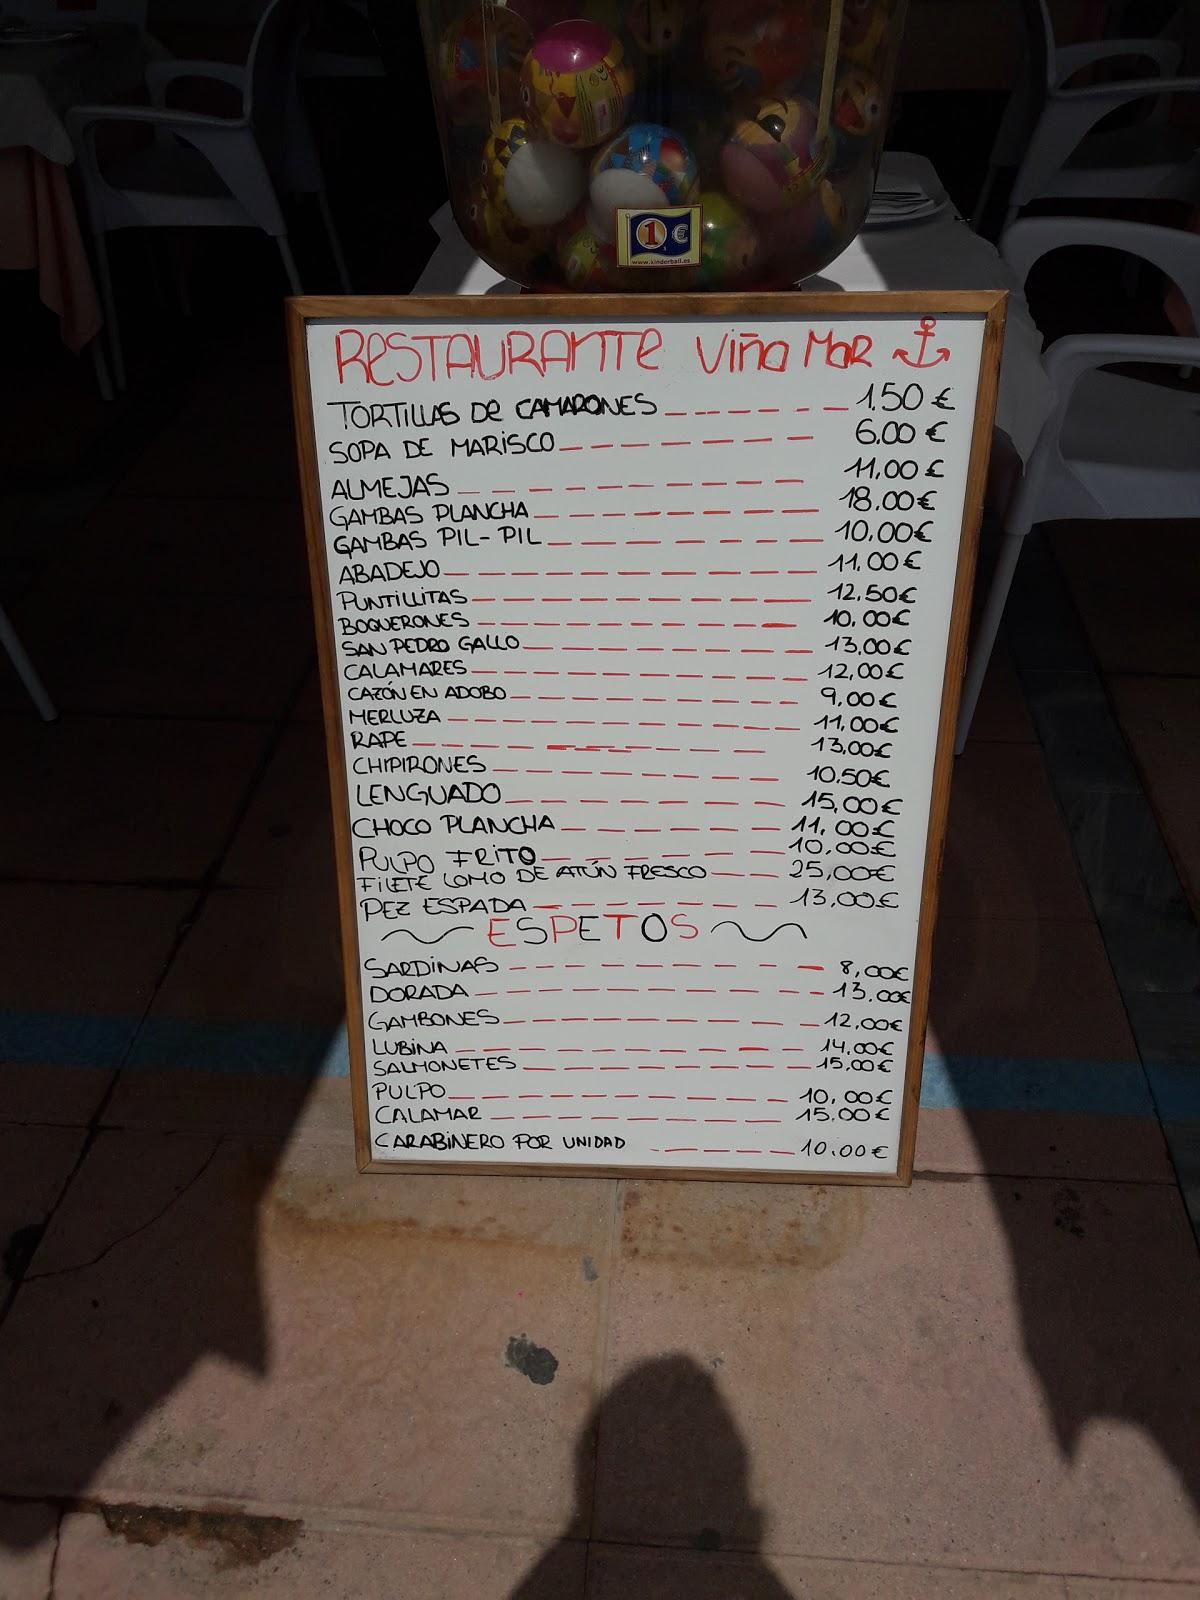 1 €
www.kinderball.es
RESTAURANTE Viña MaR
TORTILLAS De CAMARONES 1.50 €
SOPA DE MARISCO 6.00 €
ALMEJAS 11,00 €
GAMBAS PLANCHA 18.00€
GAMBAS PIL-PIL 10.00€
ABADEJO 11.00€
PUNTILLITAS 12.50€
BOQUERONES 10,00€
SAN PEDRO GALLO 13,00€
CALAMARES 12,00€
CAZÓN EN ADOBO 9,00€
MERLUZA 11,00€
RAPE 13,00€
CHIPIRONES 10.50€
LENGUADO 15,00€
CHOCO PLANCHA 11,00€
PULPO FRITO 10,00€
FILETE LOMO DE ATÚN FRESCO 25,00€
PEZ ESPADA 13,00€
ESPETOS
SARDINAS 8,00€
DORADA 13.00€
GAMBONES 12,00€
LUBINA 14.00€
SALMONETES 15,00€
PULPO 10,00€
CALAMAR 15.00€
CARABINERO POR UNIDAD 10.00€